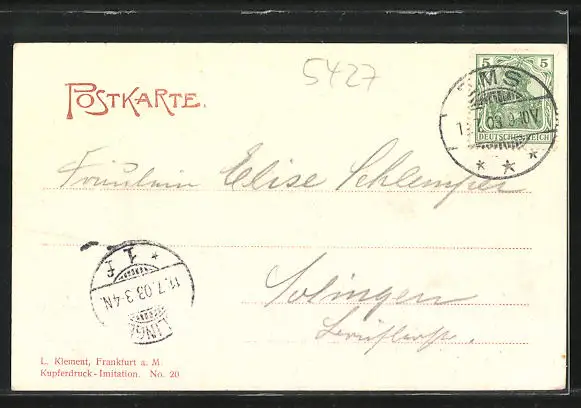 5427
POSTKARTE.
5 5
DEUTSCHES REICH
EMS
7 03 9-10V
Fräulein Elise Schlemper
11.7.03.3-4N
Solingen
L. Klement, Frankfurt a. M
Kupferdruck-Imitation. No. 20